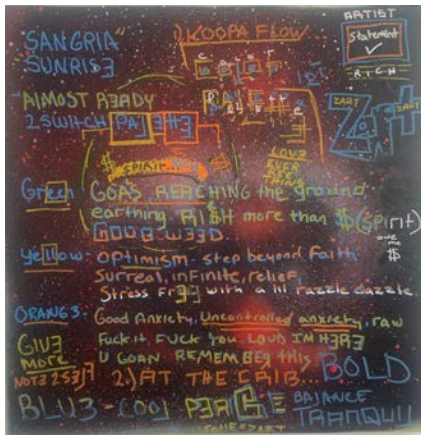 "SANGRIA"
SUNRIS3
1.) KOOPA FLOW...
ARTIST
Statement
✓
RICH
"AlMOST R3ADY
2 SWITCH
12"
ZART
ZART
LOV3
EVER
BEEN
THING
$ SPIRIT
Green: GOALS REACHING the ground
earthing RI$H more than $ (spirit)
owe me
$
GOUB W33D.
Yellow: optimism. step beyond faith
surreal, infinite, relief,
Stress Fr33 with a lil razzle dazzle.
ORANG3: Good Anxiety, Uncontrolled anxiety, raw
Fuck it. FUCK YOU. LOUD IM H3R3
U GOAN REMEMBER this
GIV3
MORE
NOT3 2 S3lf
2.) AT THE CRIB...
BOLD
BLU3 - COOl
BALANCE
TRANQUIl